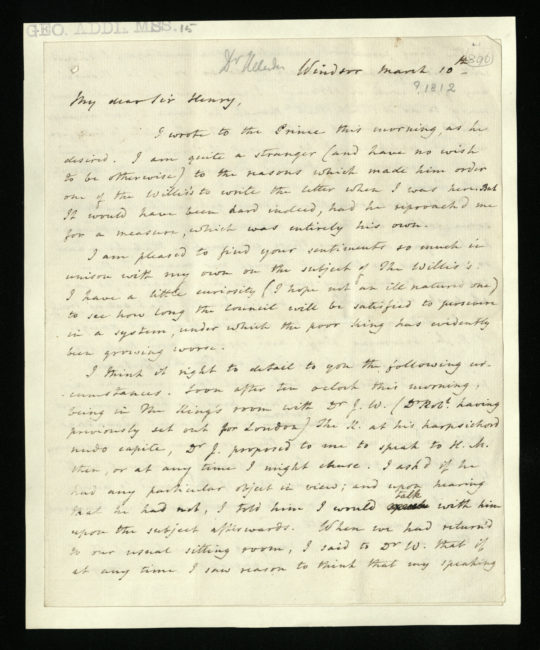 GEO. ADDL. MSS. 15
Dr Heberden Windsor March 10th
? 1812
My dear Sir Henry,
I wrote to the Prince this morning, as he
desired. I am quite a stranger (and have no wish
to be otherwise) to the reasons which made him order
one of the Willis's to write the letter when I was here. But
It would have been hard indeed, had he reproach'd me
for a measure, which was entirely his own.
I am pleased to find your sentiments so much in
unison with my own on the subject of The Willis's.
I have a little curiosity (I hope not an ill natured one)
to see how long the Council will be satisfied to persevere
in a system, under which the poor King has evidently
been growing worse.
I think it right to detail to you the following cir-
-cumstances. Soon after ten o'clock this morning,
being in the King's room with Dr J. W. (Dr Robt. having
previously set out for London) The K. at his harpsichord
nudo capite, Dr J. proposed to me to speak to H. M.
then, or at any time I might chuse. I ask'd if he
had any particular object in view; and upon hearing
that he had not, I told him I would talk with him
upon the subject afterwards. When we had return'd
to our usual sitting room, I said to Dr W. that if
at any time I saw reason to think that my speaking